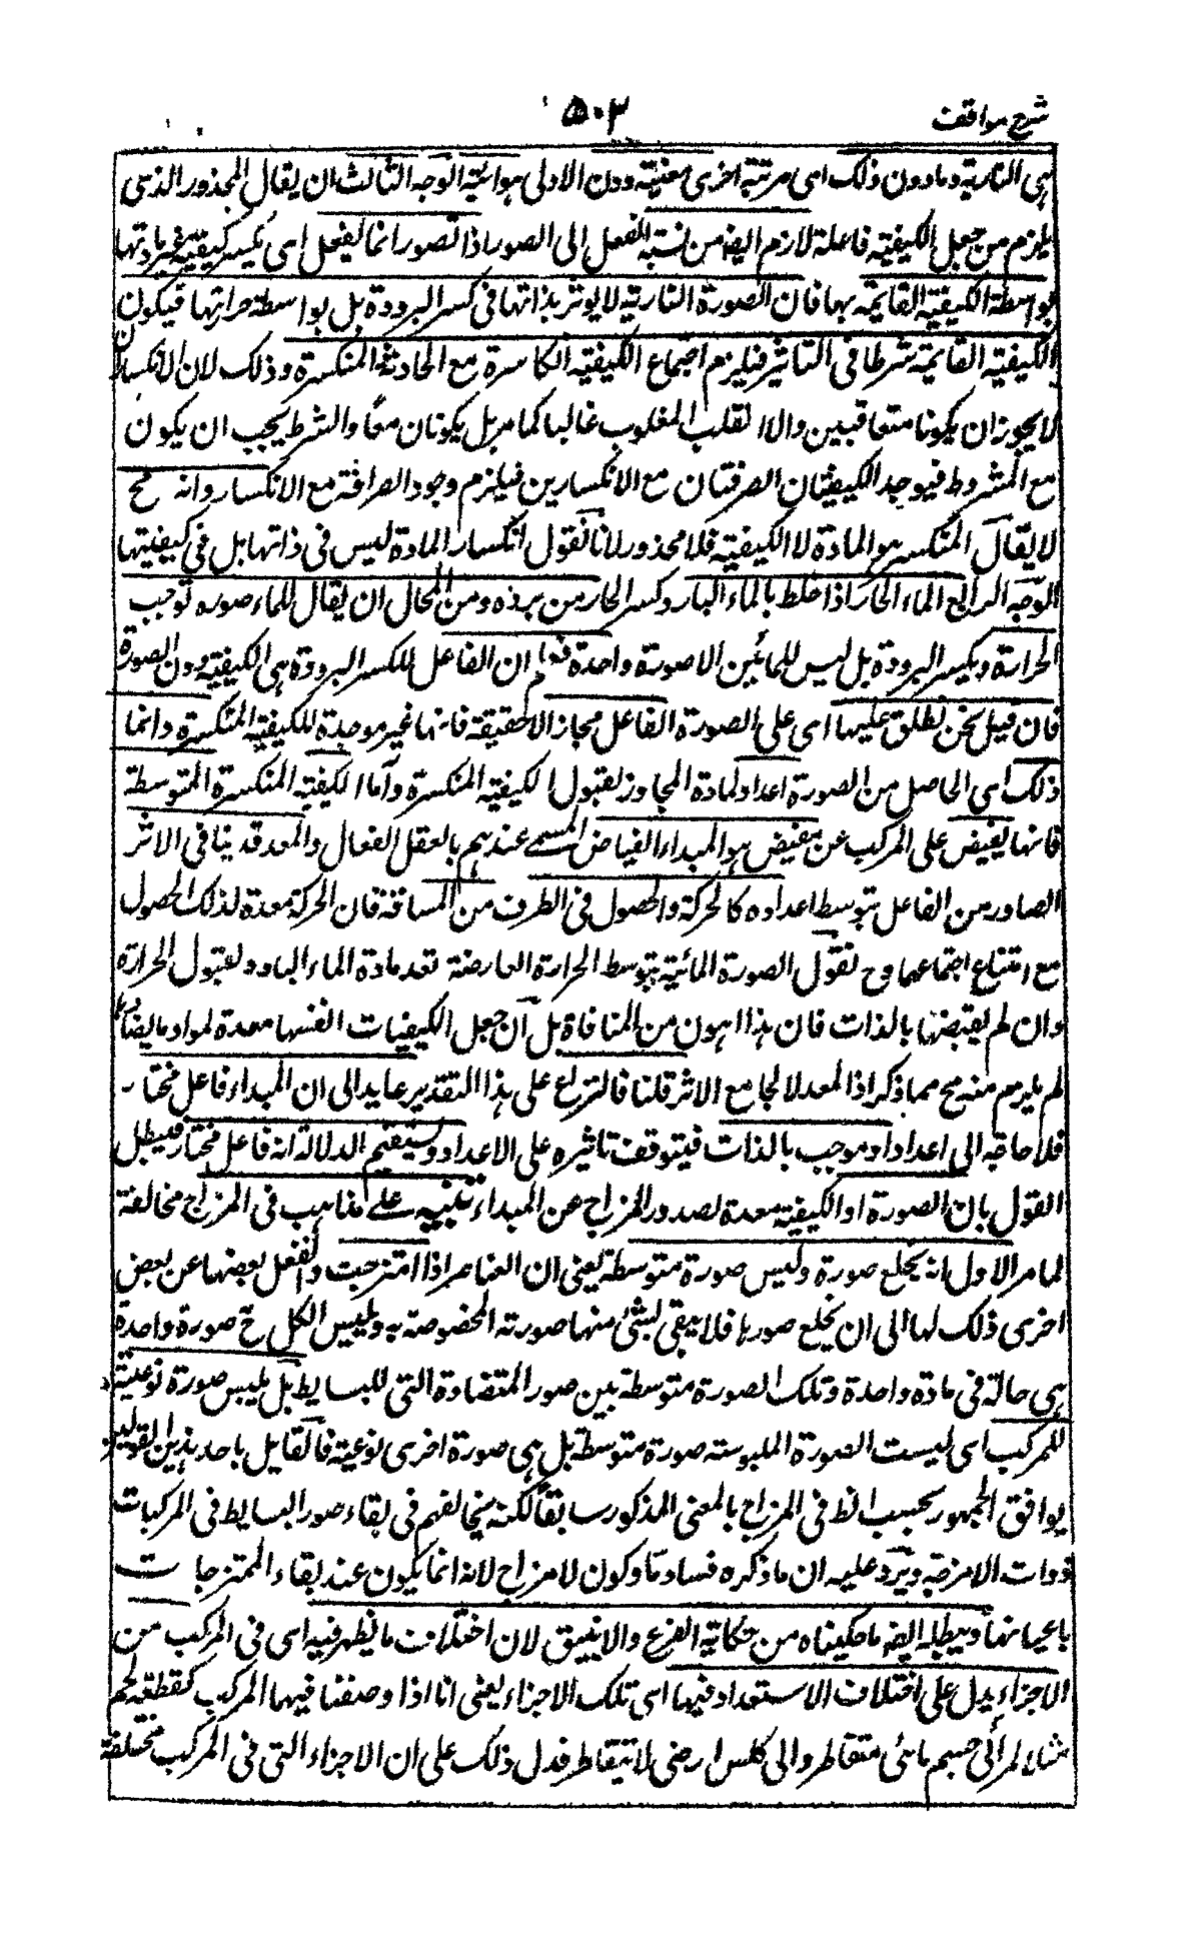 شرح مواقف
٥٠٣
هى النارية ومادون ذلك اى مرتبة اخرى معينة ودن الاولى هوائية الوجه الثالث ان يقال المحذور الذى
يلزم من جعل الكيفية فاعلة لازم ايضا من نسبة الفعل الى الصور اذ الصور انما تفعل اى تكسر كيفية غير مادتها
بواسطة الكيفية القايمة بها فان الصورة النارية لا يوثر بذاتها فى كسر البرودة بل بواسطة حرارتها فيكون
الكيفية القايمة شرطا فى التاثير فيلزم اجتماع الكيفية الكاسرة مع الحادثة المنكسرة وذلك لان الانكسارين
لا يجوز ان يكونا متعاقبين والا انقلب المغلوب غالبا كما مر بل يكونان معًا والشرط يجب ان يكون
مع المشروط فيوجد الكيفيتان الصرفتان مع الانكسارين فيلزم وجود الصرافة مع الانكسار وانه مح
لا يقال المنكسر هو المادة لا الكيفية فلا محذور لانا نقول انكسار المادة ليس فى ذاتها بل فى كيفيتها
الوجه الرابع الماء الحار اذا خلط بالماء البارد وكسر الحار من برده ومن المحال ان يقال للماء صوره توجب
الحرارة ويكسر البرودة بل ليس للمائين الا صورة واحدة فعلم ان الفاعل للكسر البرودة هى الكيفية دون الصورة
فان قيل نحن نطلق عليها اى على الصورة الفاعل مجازا لا حقيقة فانها غير موجدة للكيفية المنكسرة وانما
ذلك اى الحاصل من الصورة اعداد لمادة المجاور لقبول الكيفية المنكسرة واما الكيفية المنكسرة المتوسطة
فانها يفيض على المركب عن مفيض هو المبداء الفياض المسمى عندهم بالعقل الفعال والمعد قد ينافى الاثر
الصادر من الفاعل بتوسط اعداده كالحركة والحصول فى الطرف من المسافة فان الحركة معدة لذلك الحصول
مع امتناع اجتماعهما وح نقول الصورة المائية بتوسط الحرارة العارضة تعد مادة الماء البارد لقبول الحرارة
وان لم يقتضها بالذات فان هذا اهون من المنافاة بل ان جعل الكيفيات انفسها معدة لمواد ما يضادها
لم يلزم منه مح مما ذكر اذ المعد لا يجامع الاثر قلنا فالنزاع على هذا التقدير عايد الى ان المبداء فاعل مختار
فلا حاجة الى اعداد او موجب بالذات فيتوقف تاثيره على الاعداد وستقيم الدلالة انه فاعل مختار فيبطل
القول بان الصورة او الكيفية معدة لصدور المزاج عن المبداء تنبيه على مذاهب فى المزاج مخالفة
لما مر الاول انه يخلع صورة وليس صورة متوسطة يعنى ان العناصر اذا امتزجت وانفعل بعضها عن بعض
اخرى ذلك لها الى ان يخلع صورها فلا يبقى لشئ منها صورته المخصوصة به ويلبس الكل ح صورة واحدة
هى حالة فى مادة واحدة وتلك الصورة متوسطة بين صور المتضادة التى للبسايط بل يلبس صورة نوعية
للمركب اى ليست الصورة الملبوسة صورة متوسطة بل هى صورة اخرى نوعية فالقايل باحد هذين القولين
يوافق الجمهور بحسب الظ فى المزاج بالمعنى المذكور سابقًا لكنه يخالفهم فى بقاء صور البسايط فى المركبات
ذوات الامزجة ويرد عليه ان ما ذكره فساد ما وكون لا مزاج لانه انما يكون عند بقاء الممتزجات
باعيانها ويبطله ايضا ما حكيناه من حكاية القرع والانبيق لان اختلاف ما يظهر فيه اى فى المركب من
الاجزاء يدل على اختلاف الاستعداد فيها اى تلك الاجزاء يعنى انا اذا وضعنا فيهما المركب كقطعة لحم
مثلا تميز الى جسم مائى متقاطر والى كلس ارضى لا يتقاطر فدل ذلك على ان الاجزاء التى فى المركب مختلفة